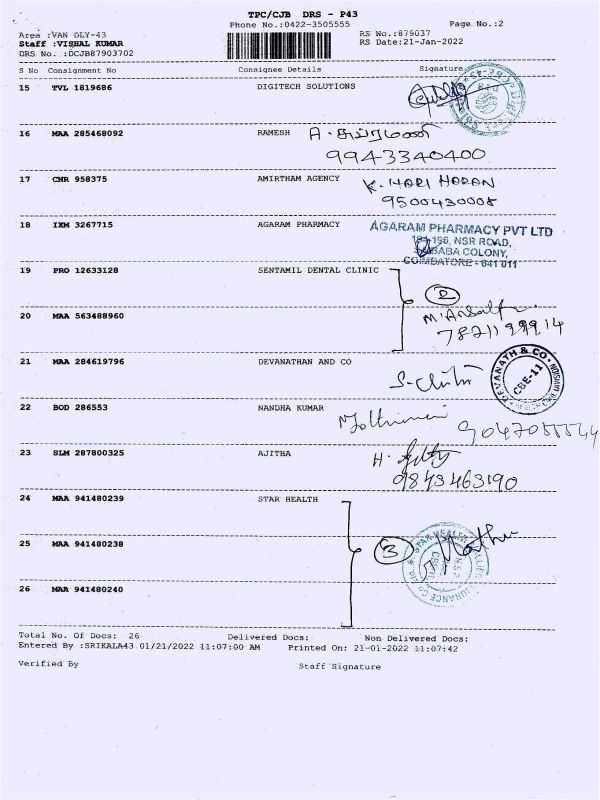 TPC/CJB DRS - P43
Phone No.:0422-3505555 Page No.:2
Area :VAN DLY-43 RS No.:879037
Staff :VISHAL KUMAR RS Date:21-Jan-2022
DRS No. :DCJB87903702
S No Consignment No Consignee Details Signature
15 TVL 1819686 DIGITECH SOLUTIONS
16 MAA 285468092 RAMESH A. சுப்ரமணி
9943340400
17 CNR 958375 AMIRTHAM AGENCY K. HARI HARAN
9500430008
18 IXM 3267715 AGARAM PHARMACY AGARAM PHARMACY PVT LTD
196, NSR ROAD,
BABA COLONY,
COIMBATORE - 641 011
19 PRO 12633128 SENTAMIL DENTAL CLINIC 2
20 MAA 563488960
21 MAA 284619796 DEVANATHAN AND CO DEVANATH & CO. CBE-11
22 BOD 286553 NANDHA KUMAR
23 SLM 287800325 AJITHA
9843463190
24 MAA 941480239 STAR HEALTH
25 MAA 941480238 3 STAR HEALTH
26 MAA 941480240
Total No. Of Docs: 26 Delivered Docs: Non Delivered Docs:
Entered By :SRIKALA43 01/21/2022 11:07:00 AM Printed On: 21-01-2022 11:07:42
Verified By Staff Signature